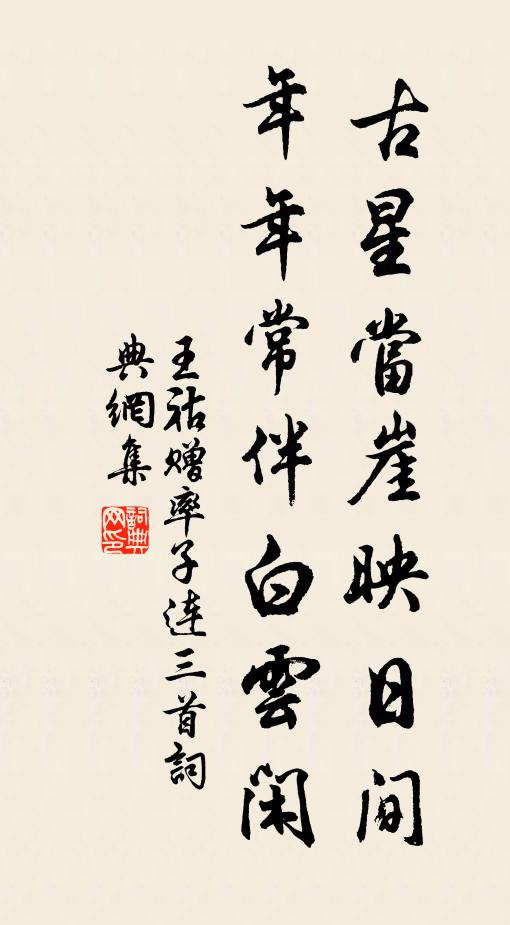 古星當崖映日間
年年常伴白雲閑
王祜贈率子連三首詞
典網集
詞典網印